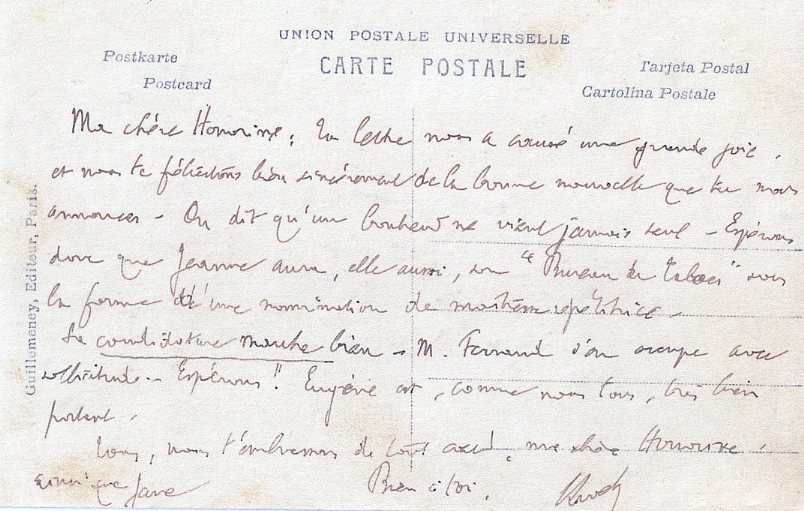 UNION POSTALE UNIVERSELLE
CARTE POSTALE
Postkarte
Postcard
Tarjeta Postal
Cartolina Postale
Guillemeney, Editeur, Paris.
Ma chère Honorine, ta lettre nous a causé une grande joie,
et nous te félicitons bien sincèrement de la bonne nouvelle que tu nous
annonces – On dit qu'un bonheur ne vient jamais seul – Espérons
donc que Jeanne aura, elle aussi, son "Bureau de tabac" sous
la forme d'une nomination de maîtresse répétitrice –
Sa candidature marche bien – M. Fernand s'en occupe avec
sollicitude – Espérons !! Eugène est, comme nous tous, très bien
portant.
Tous, nous t'embrassons de tout cœur, ma chère Honorine,
ainsi que
Bien à toi,